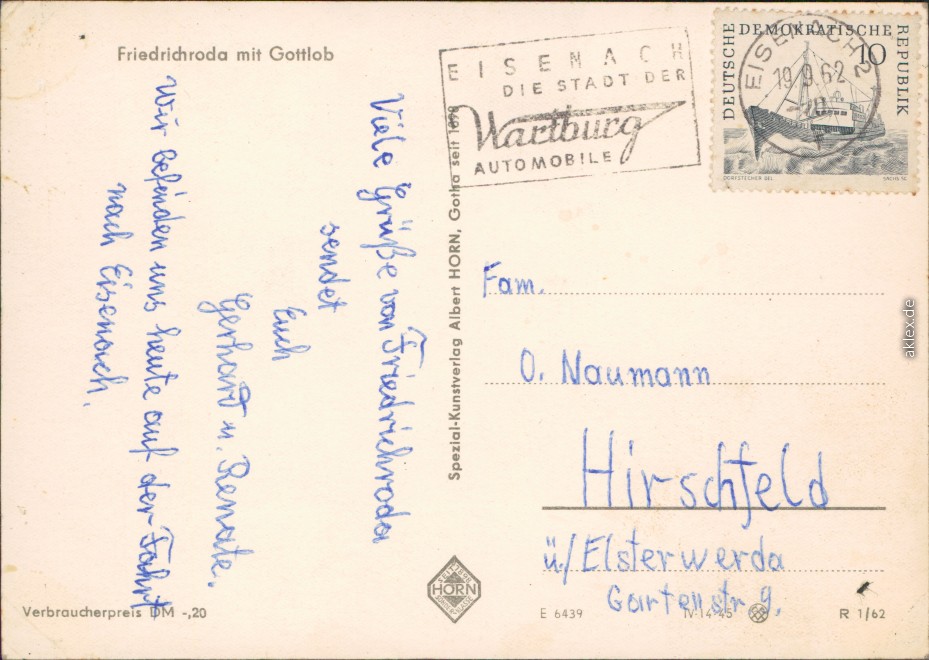 Friedrichroda mit Gottlob
Viele Grüße von Friedrichroda
sendet
Euch
Gerhard u. Renate.
Wir befinden uns heute auf der Fahrt
nach Eisenach.
Verbraucherpreis DM -,20
Spezial-Kunstverlag Albert HORN, Gotha seit 1898
HORN
EISENACH
DIE STADT DER
Wartburg
AUTOMOBILE
DEUTSCHE DEMOKRATISCHE REPUBLIK
10
DORFSTECHER DEL.
SACHS SC.
EISENACH 2
19.9.62
-20
Fam.
O. Naumann
Hirschfeld
ü./Elsterwerda
Gartenstr 9.
E 6439
IV-14-45
R 1/62
aklex.de